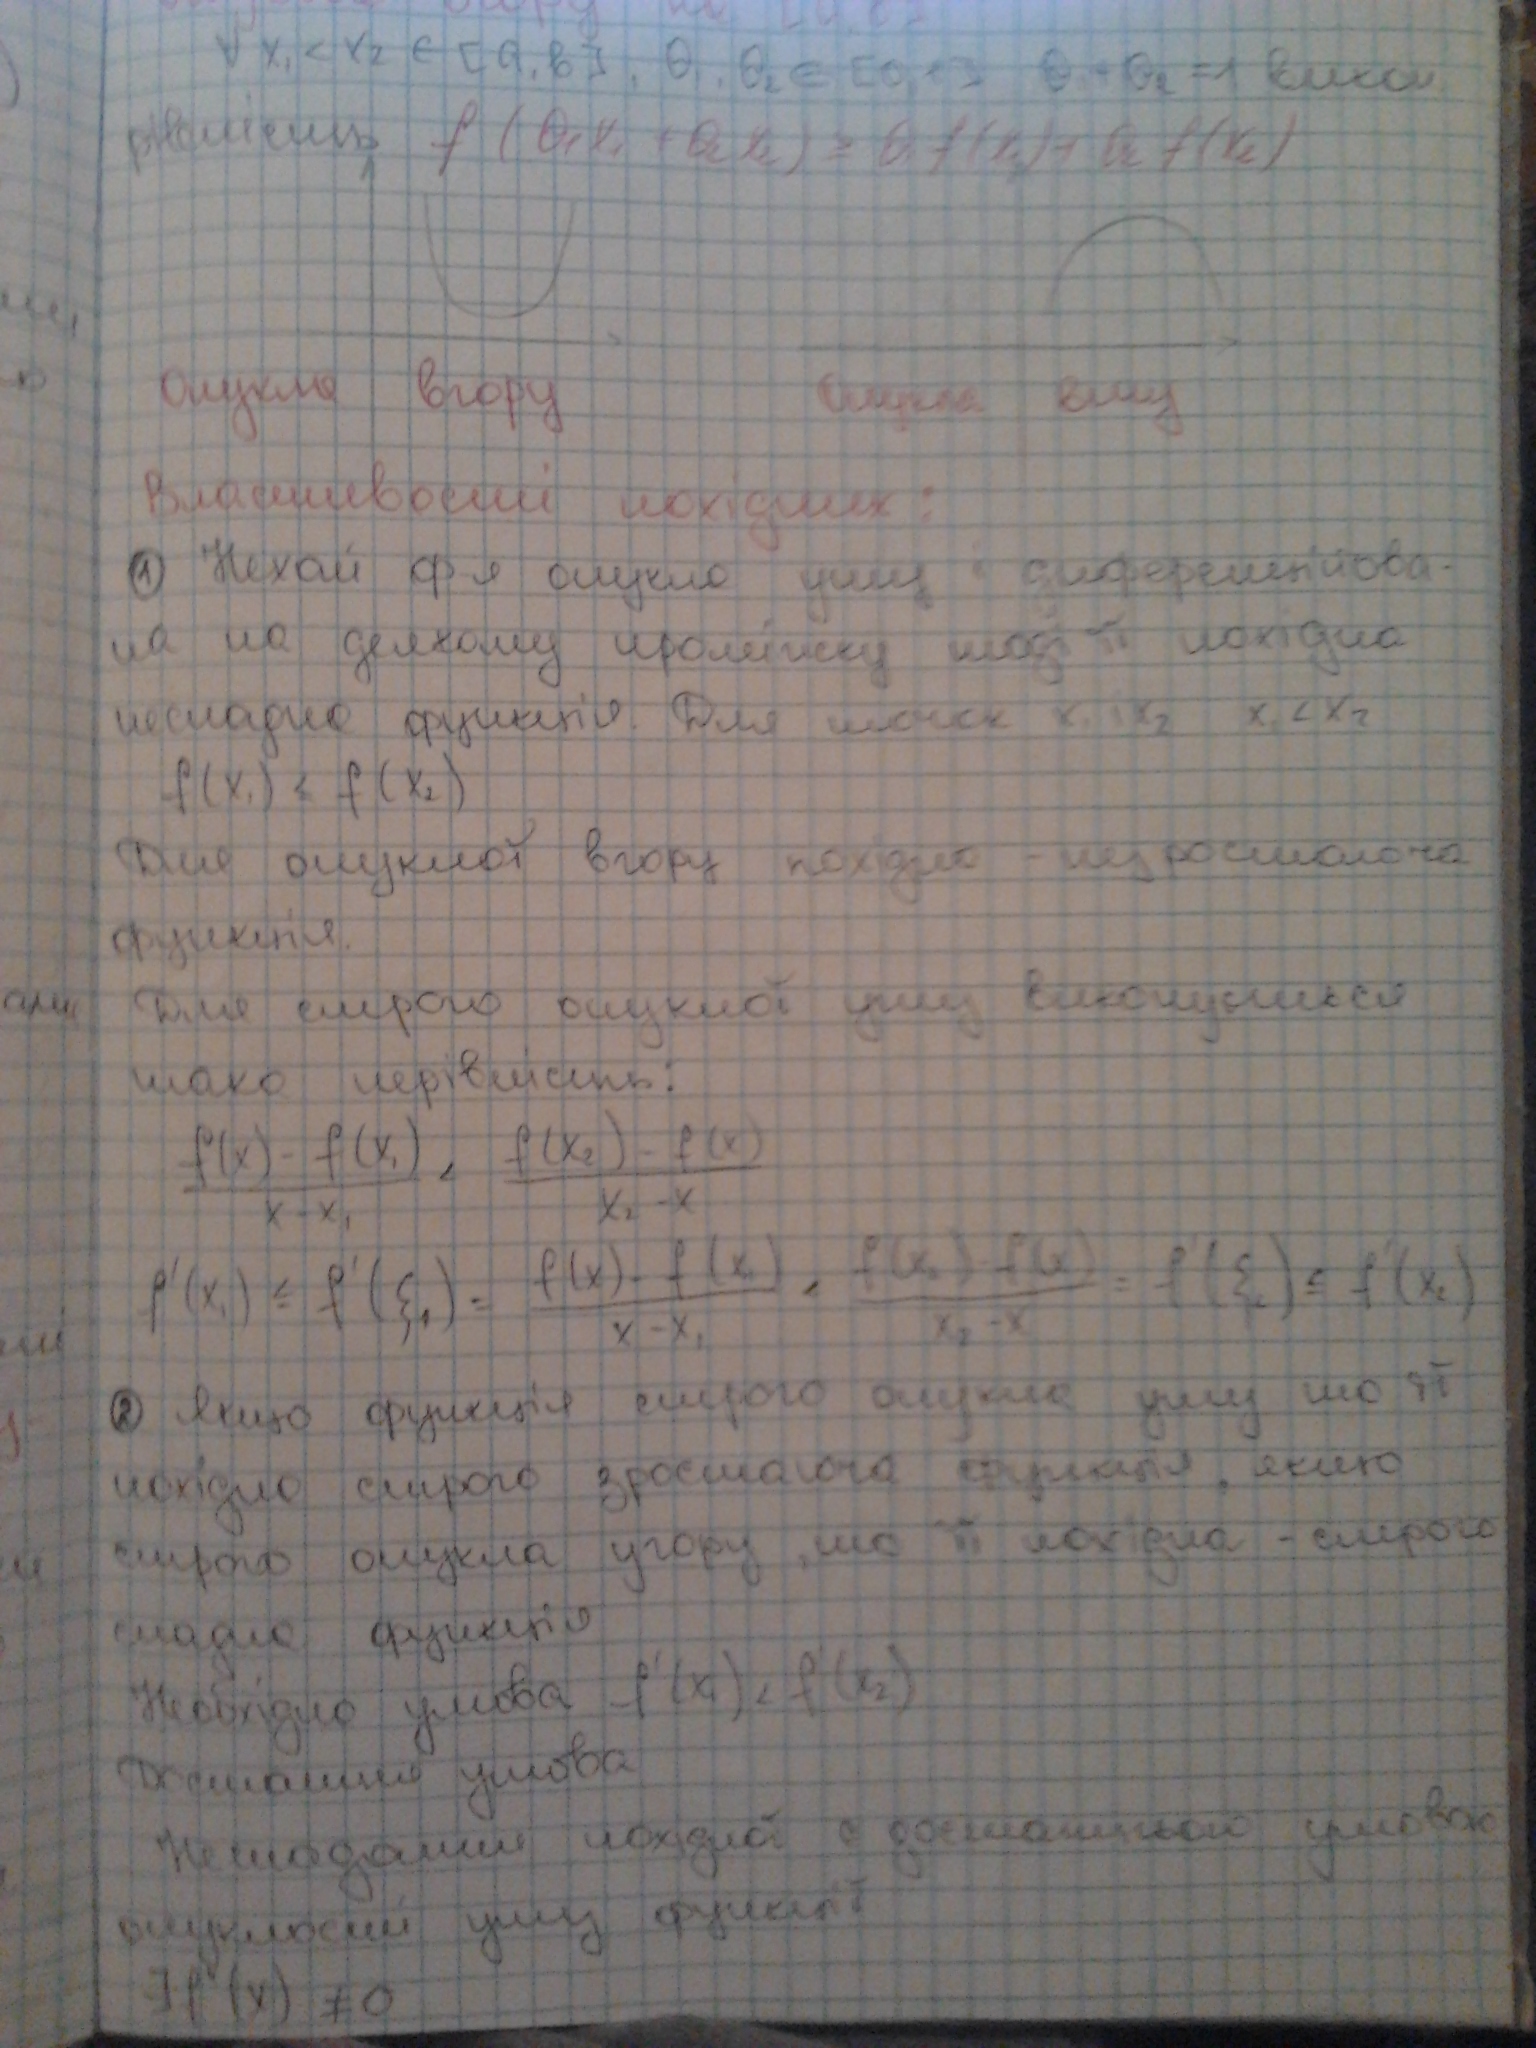 ∀ x₁ < x₂ ∈ [a, b], θ₁, θ₂ ∈ [0, 1] θ₁ + θ₂ = 1 викон
рівність f(θ₁x₁ + θ₂x₂) ≥ θ₁ f(x₁) + θ₂ f(x₂)
Опукла вгору Опукла вниз
Властивості похідних:
① Нехай ф-я опукла униз і диференційова-
на на деякому проміжку тоді її похідна
неспадна функція. Для точок x₁, x₂ x₁ < x₂
f(x₁) < f(x₂)
Для опуклої вгору похідна - незростаюча
функція.
Для строго опуклої униз виконується
така нерівність:
(f(x) - f(x₁))/(x - x₁) < (f(x₂) - f(x))/(x₂ - x)
f'(x₁) ≤ f'(ξ₁) = (f(x) - f(x₁))/(x - x₁) < (f(x₂) - f(x))/(x₂ - x) = f'(ξ₂) ≤ f'(x₂)
② Якщо функція строго опукла униз то її
похідна строго зростаюча функція, якщо
строго опукла угору, то її похідна - строго
спадна функція
Необхідна умова f'(x₁) < f'(x₂)
Достатня умова
Неспадання похідної є достатньою умовою
опуклості униз функції
∃ f'(x) ≠ 0